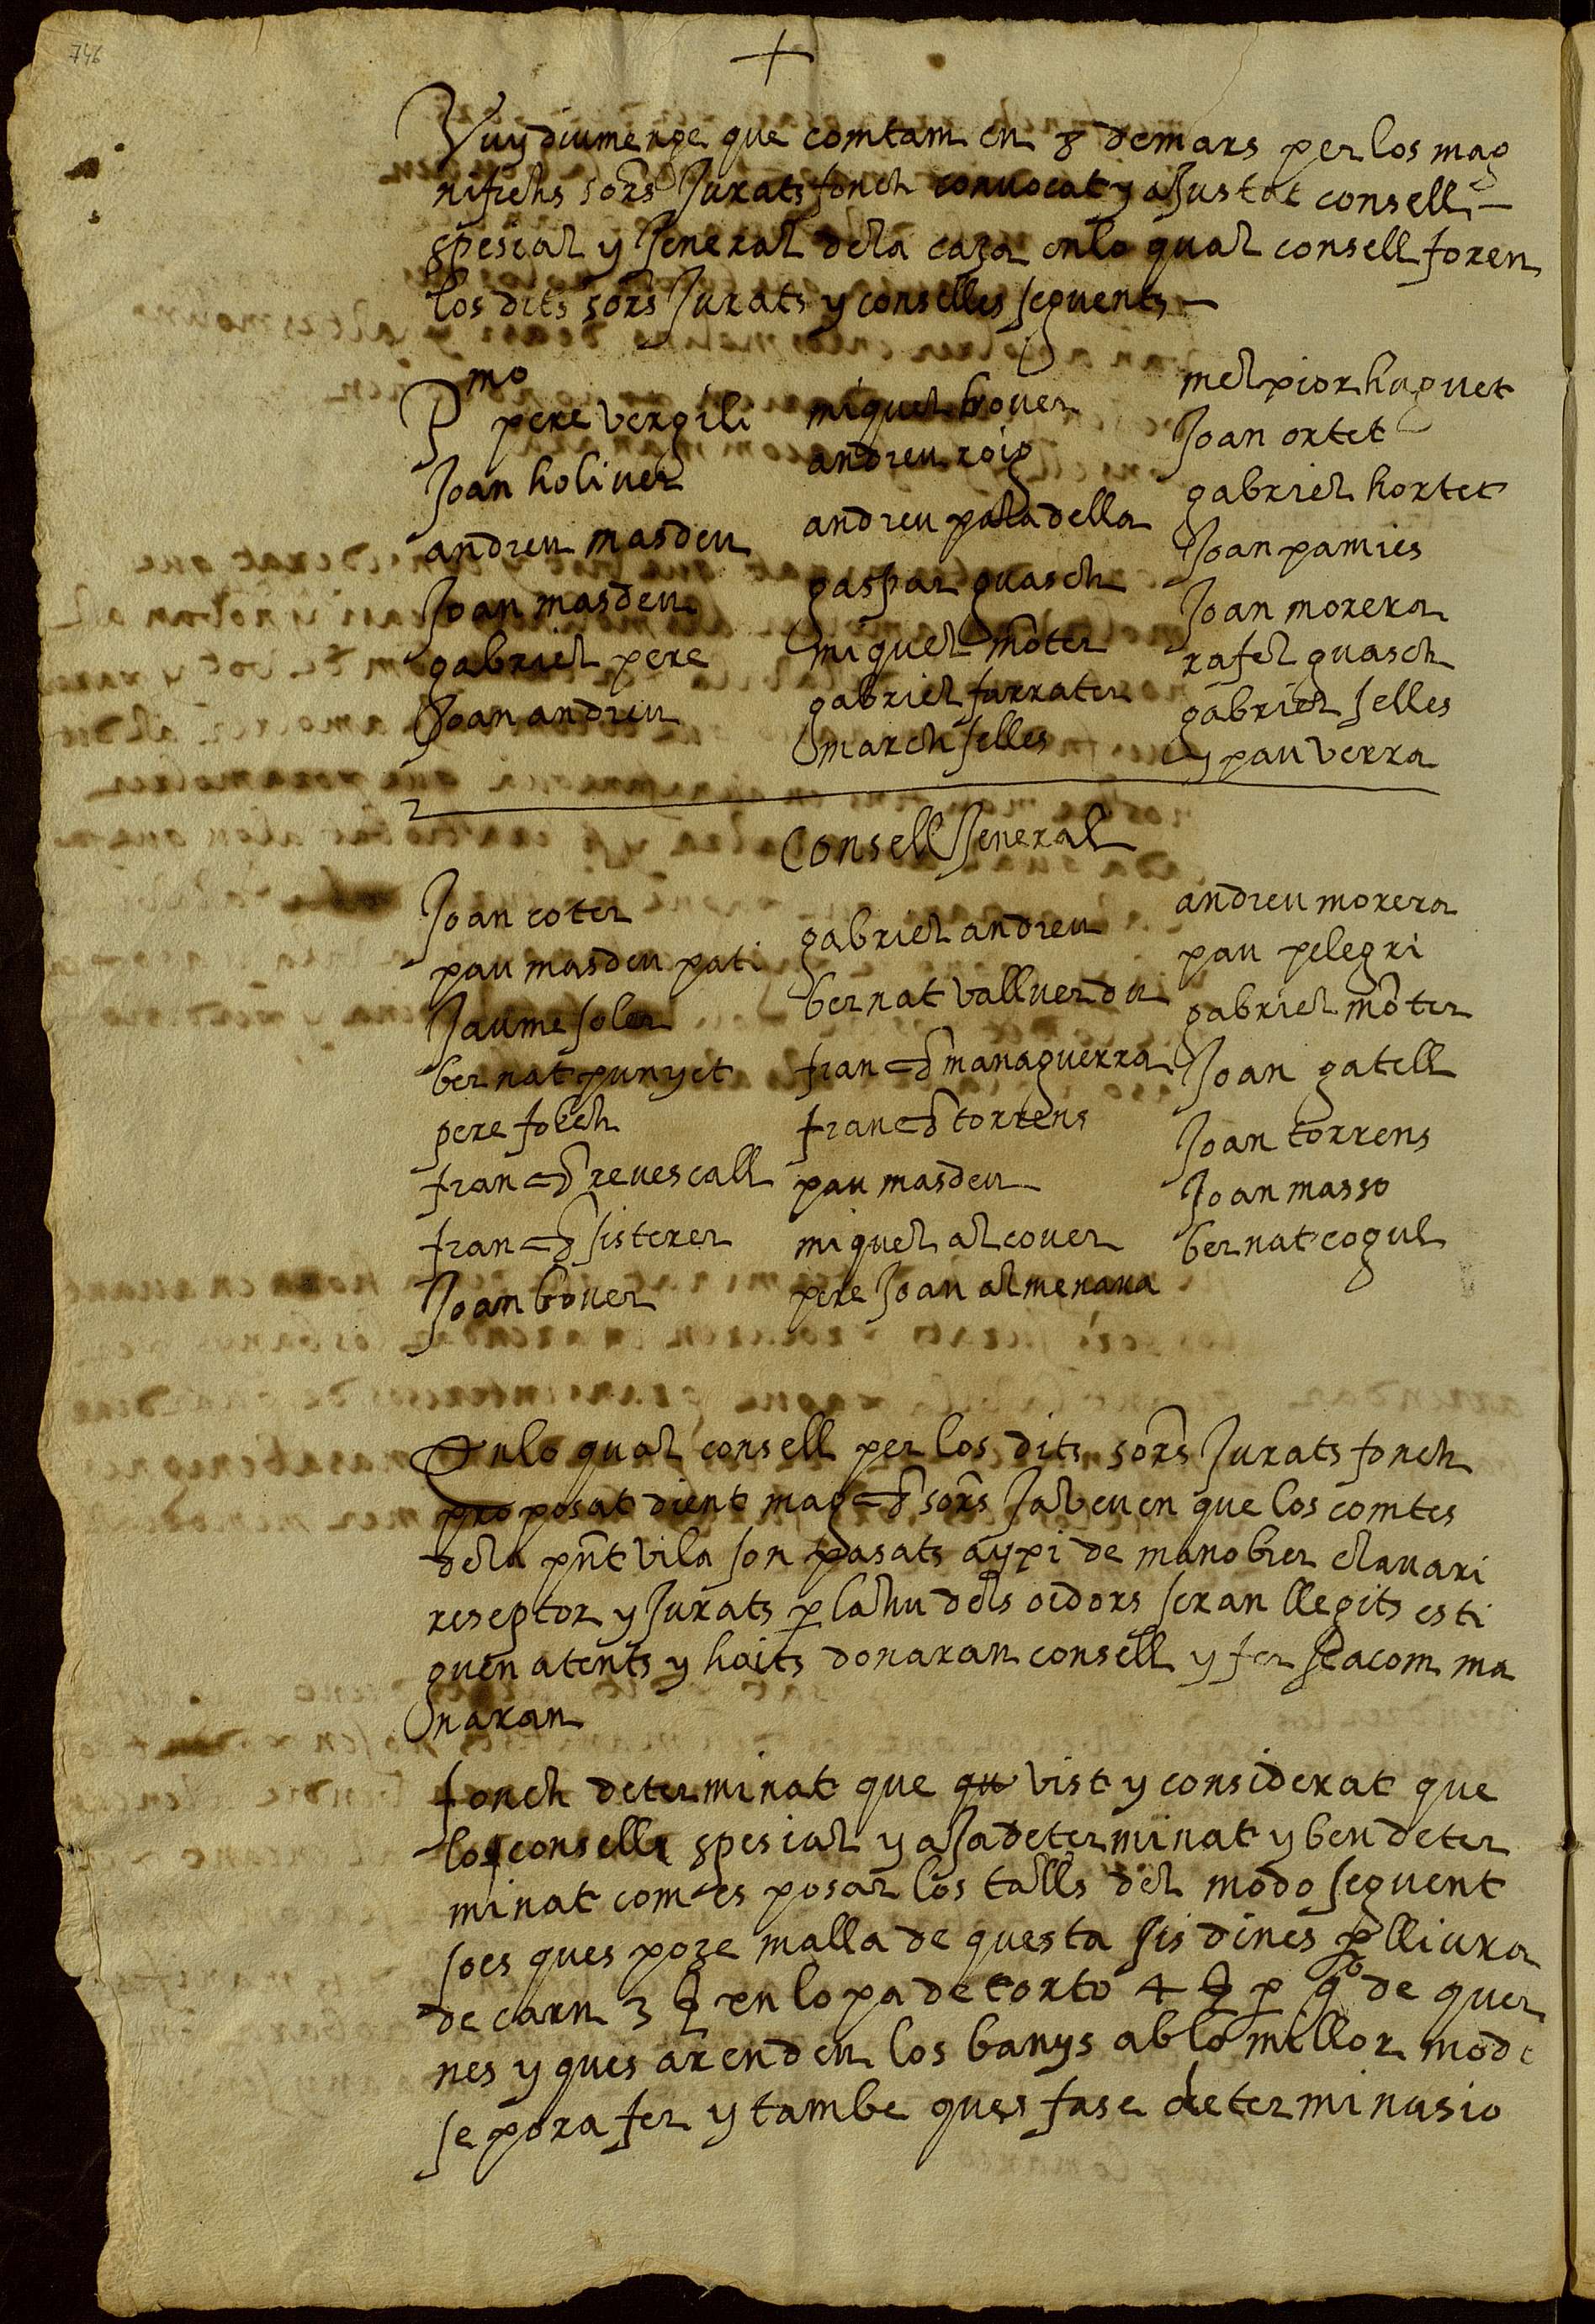 746
Vuy diumenge que comtam en 8 de mars per los mag
nifichs sors Jurats fonch convocat y aJustat consell
spesial y Jeneral dela caza enlo qual consell foren
los dits sors Jurats y conselles seguents
Pmo pere vergili
Joan holiver
andreu masdeu
Joan masdeu
gabriel pere
Joan andreu
miquel bover
andreu roig
andreu paladella
gaspar guasch
miquel moter
gabriel farrater
march selles
melpior huguet
Joan ortet
gabriel hortet
Joan pamies
Joan morera
rafel guasch
gabriel selles
y pau verra
Consell Jeneral
Joan coter
pau masdeu pati
Jaume soler
bernat punyet
pere folch
franch revescall
franch sisterer
Joan bover
gabriel andreu
bernat vallverdu
franch managuerra
franch torrens
pau masdeu
miquel alcover
pere Joan almenara
andreu morera
pau pelegri
gabriel moter
Joan gatell
Joan torrens
Joan masso
bernat cogul
Enlo qual consell per los dits sors Jurats fonch
proposat dient magchs sors Ja veuen que los comtes
dela pnt vila son pasats aypi de manobrer clavari
reseptor y Jurats p la hu dels oidors seran llegits esti
guen atents y hoits donaran consell y fer sea com ma
naran
fonch determinat que qu vist y considerat que
los consell spesial y aJa determinat y ben deter
minat com es posar los talls del modo seguent
soes ques poze malla de questa sis dines p lliura
de carn 3 en lo pa de torto 4 p qo de quer
nes y ques arenden los banys ab lo millor modo
se pora fer y tambe ques fase determinasio